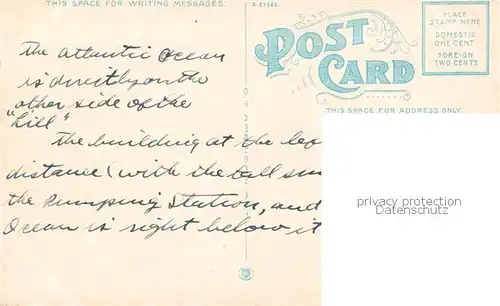 THIS SPACE FOR WRITING MESSAGES.
POST CARD
PLACE
STAMP HERE
DOMESTIC
ONE CENT
FOREIGN
TWO CENTS
THIS SPACE FOR ADDRESS ONLY.
The Atlantic Ocean
is directly on the
other side of the
"hill"
The building at the
distance (with the tall
the Pumping Station, and
Ocean is right below it
privacy protection
Datenschutz